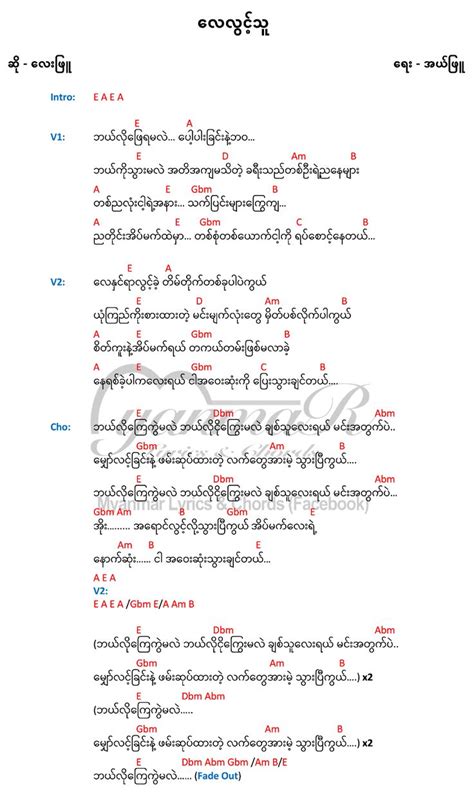 လေလွင့်သူ
ဆို - လေးဖြူ ရေး - အယ်ဖြူ
Intro: E A E A
E A
V1: ဘယ်လိုဖြေရမလဲ... ပေါ့ပါးခြင်းနဲ့ဘဝ...
E D Am B
ဘယ်ကိုသွားမလဲ အတိအကျမသိတဲ့ ခရီးသည်တစ်ဦးရဲ့ညနေများ
A E Gbm B
တစ်ညလုံးငါ့ရဲ့အနား... သက်ပြင်းများကြွေကျ...
A E Gbm C B
ညတိုင်းအိပ်မက်ထဲမှာ... တစ်စုံတစ်ယောက်ငါ့ကို ရပ်စောင့်နေတယ်...
E A
V2: လေနှင်ရာလွင့်ခဲ့ တိမ်တိုက်တစ်ခုပါပဲကွယ်
E D Am B
ယုံကြည်ကိုးစားထားတဲ့ မင်းမျက်လုံးတွေ မှိတ်ပစ်လိုက်ပါကွယ်
A E Gbm B
စိတ်ကူးနဲ့အိပ်မက်ရယ် တကယ်တမ်းဖြစ်မလာခဲ့
A E Gbm C B
နေရစ်ခဲ့ပါကလေးရယ် ငါအဝေးဆုံးကို ပြေးသွားချင်တယ်....
E Dbm Abm
Cho: ဘယ်လိုကြေကွဲမလဲ ဘယ်လိုငိုကြွေးမလဲ ချစ်သူလေးရယ် မင်းအတွက်ပဲ..
Gbm Am B E
မျှော်လင့်ခြင်းနဲ့ ဖမ်းဆုပ်ထားတဲ့ လက်တွေအားမဲ့ သွားပြီကွယ်....
E Dbm Abm
ဘယ်လိုကြေကွဲမလဲ ဘယ်လိုငိုကြွေးမလဲ ချစ်သူလေးရယ် မင်းအတွက်ပဲ...
Myanmar Lyrics & Chords (Facebook)
Gbm Am B Gbm
အိုး......... အရောင်လွင့်လို့သွားပြီကွယ် အိပ်မက်လေးရဲ့
Am B E
နောက်ဆုံး...... ငါ အဝေးဆုံးသွားချင်တယ်...
A E A
V2:
E A E A /Gbm E/A Am B
E Dbm Abm
(ဘယ်လိုကြေကွဲမလဲ ဘယ်လိုငိုကြွေးမလဲ ချစ်သူလေးရယ် မင်းအတွက်ပဲ..
Gbm Am B E
မျှော်လင့်ခြင်းနဲ့ ဖမ်းဆုပ်ထားတဲ့ လက်တွေအားမဲ့ သွားပြီကွယ်....) x2
E Dbm Abm
(ဘယ်လိုကြေကွဲမလဲ.....
Gbm Am B E
မျှော်လင့်ခြင်းနဲ့ ဖမ်းဆုပ်ထားတဲ့ လက်တွေအားမဲ့ သွားပြီကွယ်....) x2
E Dbm Abm Gbm /Am B/E
ဘယ်လိုကြေကွဲမလဲ...... (Fade Out)